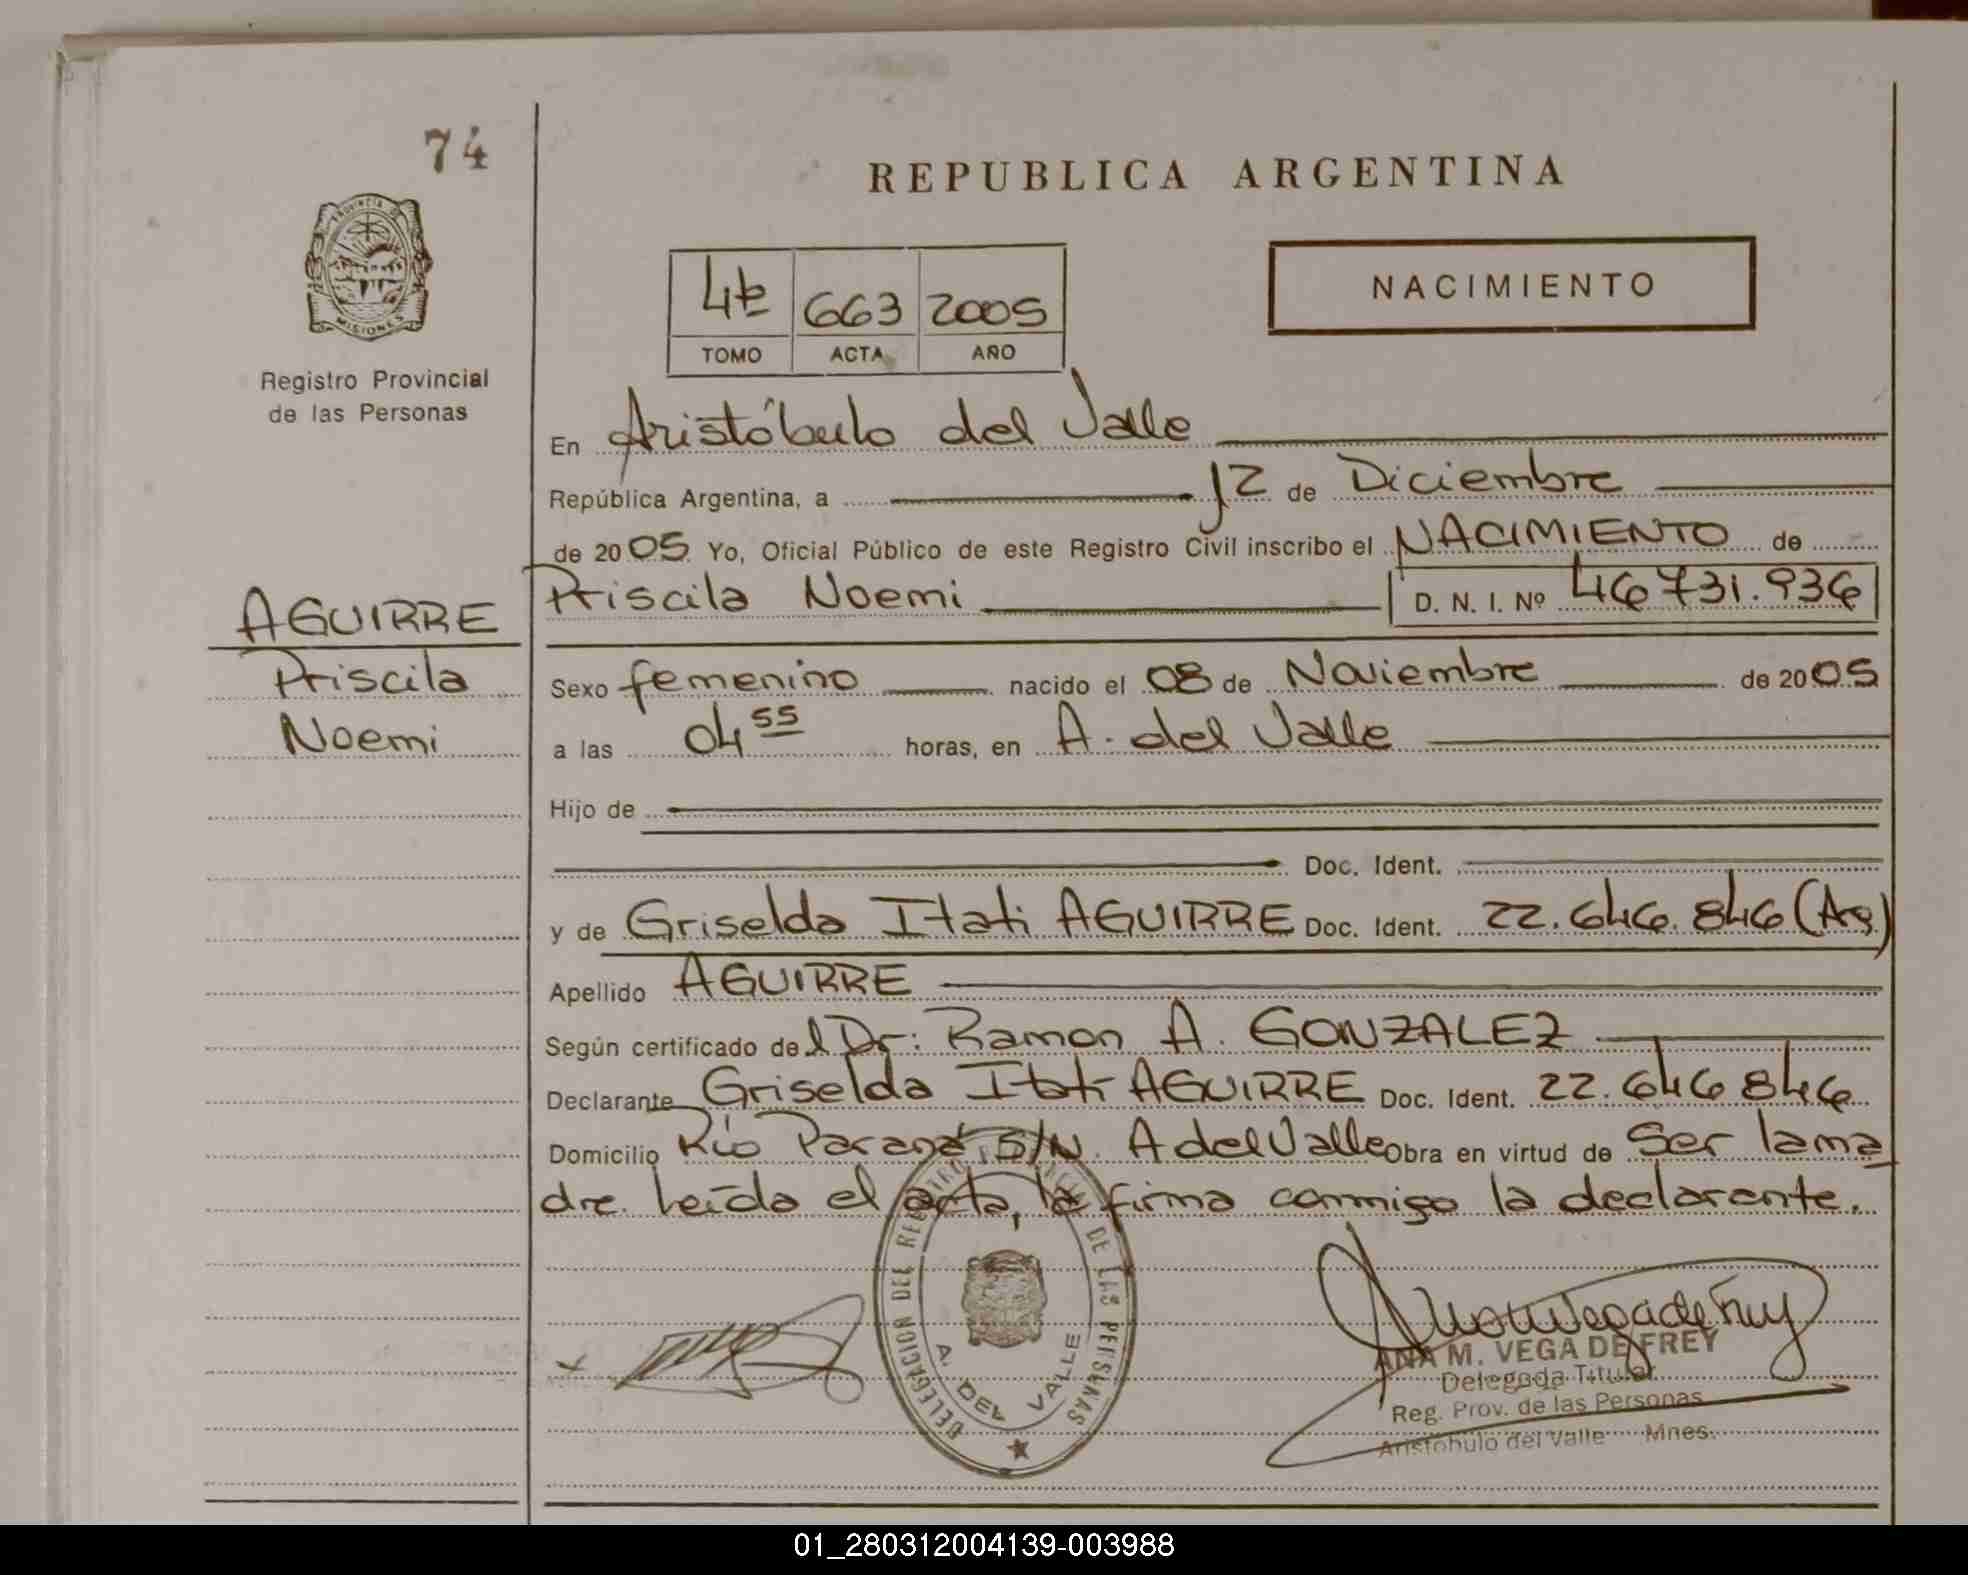 74
REPUBLICA ARGENTINA
PROVINCIA DE
MISIONES
Registro Provincial
de las Personas
NACIMIENTO
4to 663 2005
TOMO ACTA AÑO
En Aristóbulo del Valle
República Argentina, a 12 de Diciembre
de 2005 Yo, Oficial Público de este Registro Civil inscribo el NACIMIENTO de
Priscila Noemi D. N. I. Nº 46 731.936
AGUIRRE
Priscila
Noemi
Sexo femenino nacido el 08 de Noviembre de 2005
a las 04 55 horas, en A. del Valle
Hijo de
Doc. Ident.
y de Griselda Itati AGUIRRE Doc. Ident. 22.646.846 (Ag)
Apellido AGUIRRE
Según certificado del Dr: Ramon A. GONZALEZ
Declarante Griselda Itati AGUIRRE Doc. Ident. 22.646 846
Domicilio Río Paraná S/N. A del Valle Obra en virtud de Ser la ma
dre. Leída el acta, la firma conmigo la declarante.
DELEGACION DEL REGISTRO PROVINCIAL DE LAS PERSONAS
A. DEL VALLE
ANA M. VEGA DE FREY
Delegada Titular
Reg. Prov. de las Personas
Aristóbulo del Valle Mnes.
01_280312004139-003988